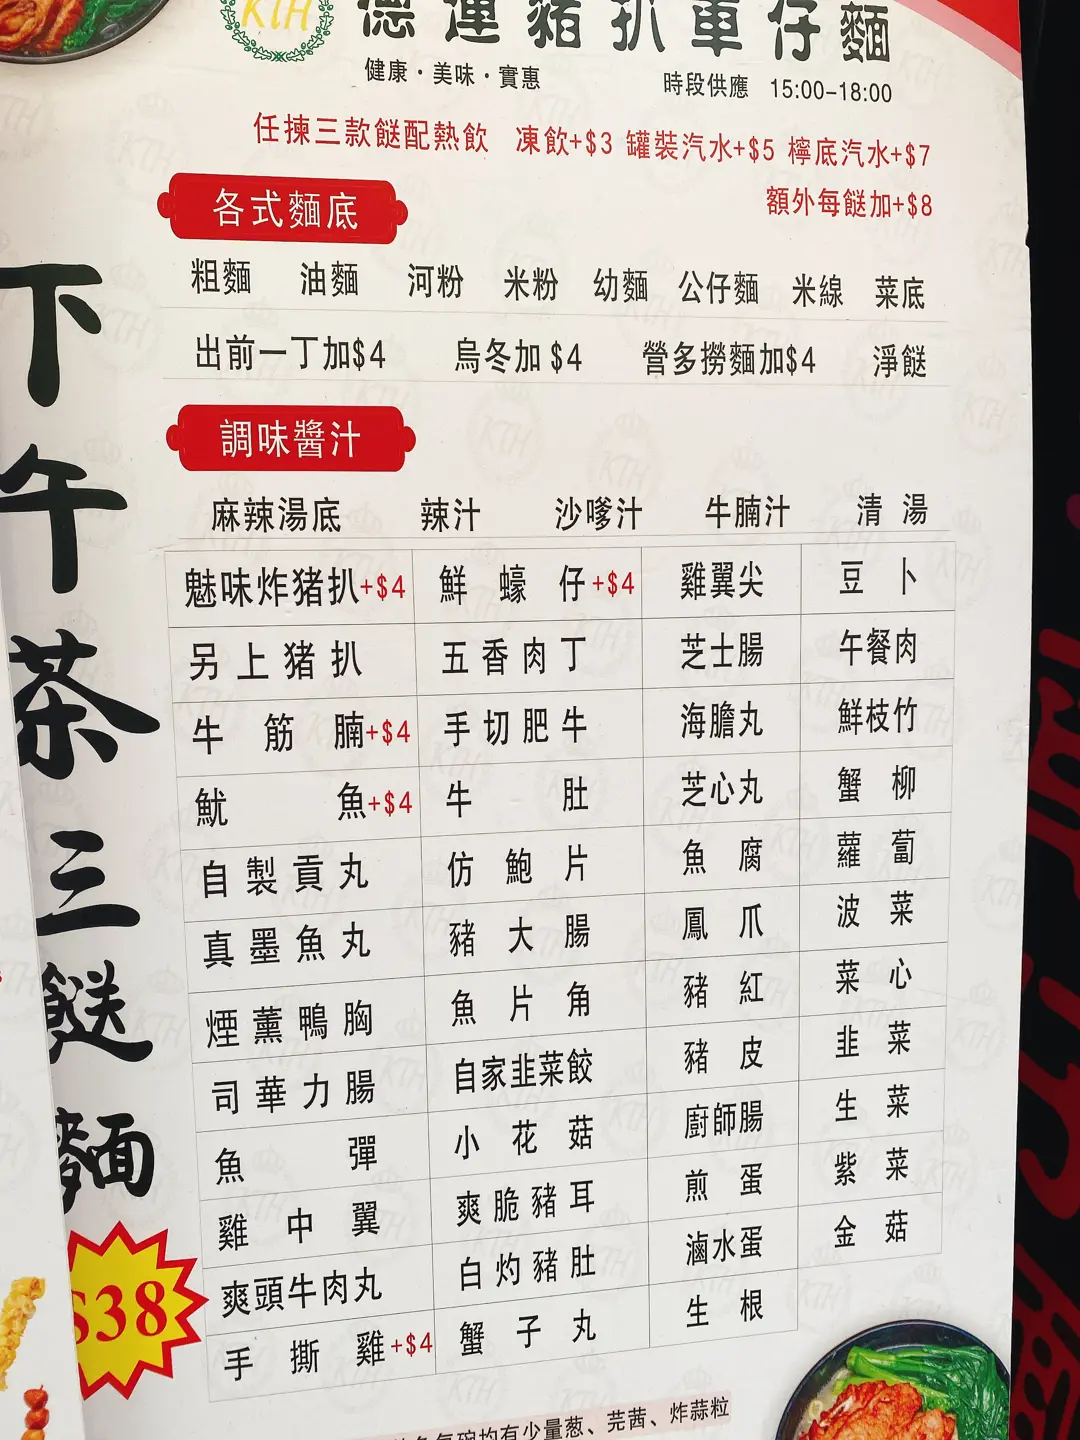 KTH
德運豬扒車仔麵
健康·美味·實惠
時段供應 15:00-18:00
任揀三款餸配熱飲 凍飲+$3 罐裝汽水+$5 檸底汽水+$7
額外每餸加+$8
下午茶三餸麵
$38
各式麵底
粗麵 油麵 河粉 米粉 幼麵 公仔麵 米線 菜底
出前一丁加$4 烏冬加$4 營多撈麵加$4 淨餸
調味醬汁
麻辣湯底 辣汁 沙嗲汁 牛腩汁 清湯
魅味炸猪扒+$4 鮮蠔仔+$4 雞翼尖 豆卜
另上猪扒 五香肉丁 芝士腸 午餐肉
牛筋腩+$4 手切肥牛 海膽丸 鮮枝竹
魷魚+$4 牛肚 芝心丸 蟹柳
自製貢丸 仿鮑片 魚腐 蘿蔔
真墨魚丸 豬大腸 鳳爪 波菜
煙薰鴨胸 魚片角 豬紅 菜心
司華力腸 自家韭菜餃 豬皮 韭菜
魚彈 小花菇 廚師腸 生菜
雞中翼 爽脆豬耳 煎蛋 紫菜
爽頭牛肉丸 白灼豬肚 滷水蛋 金菇
手撕雞+$4 蟹子丸 生根
每碗均有少量葱、芫茜、炸蒜粒